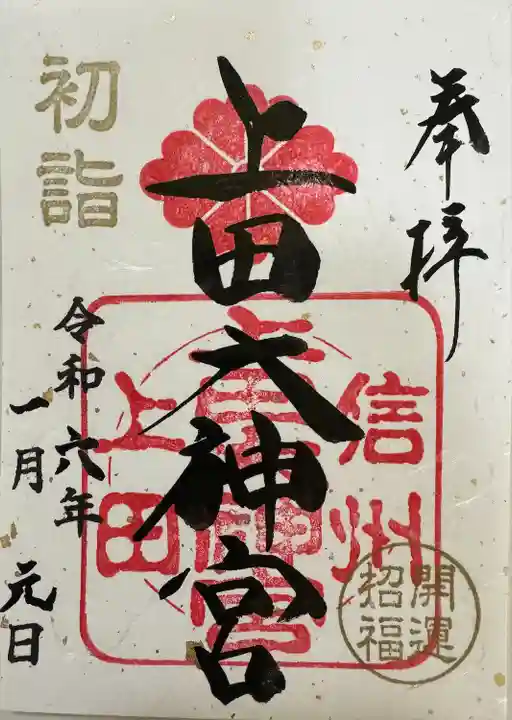 奉拝
上田大神宮
信州
上田
大神宮
初詣
令和六年
一月 元日
開運
招福